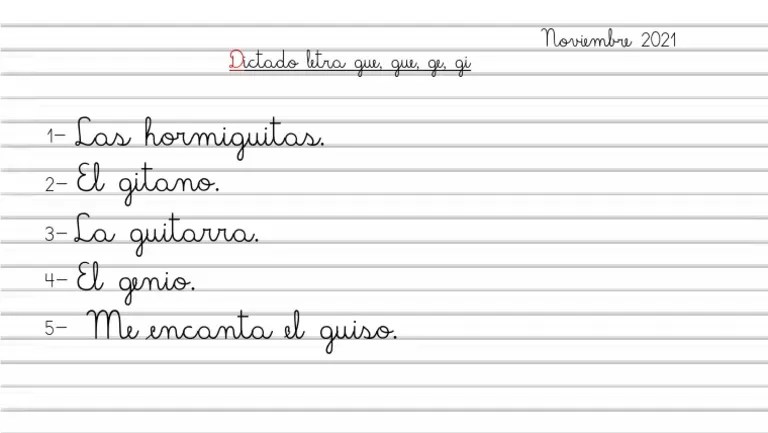 Noviembre 2021
Dictado letra gue, gue, ge, gi
1- Las hormiguitas.
2- El gitano.
3- La guitarra.
4- El genio.
5- Me encanta el guiso.